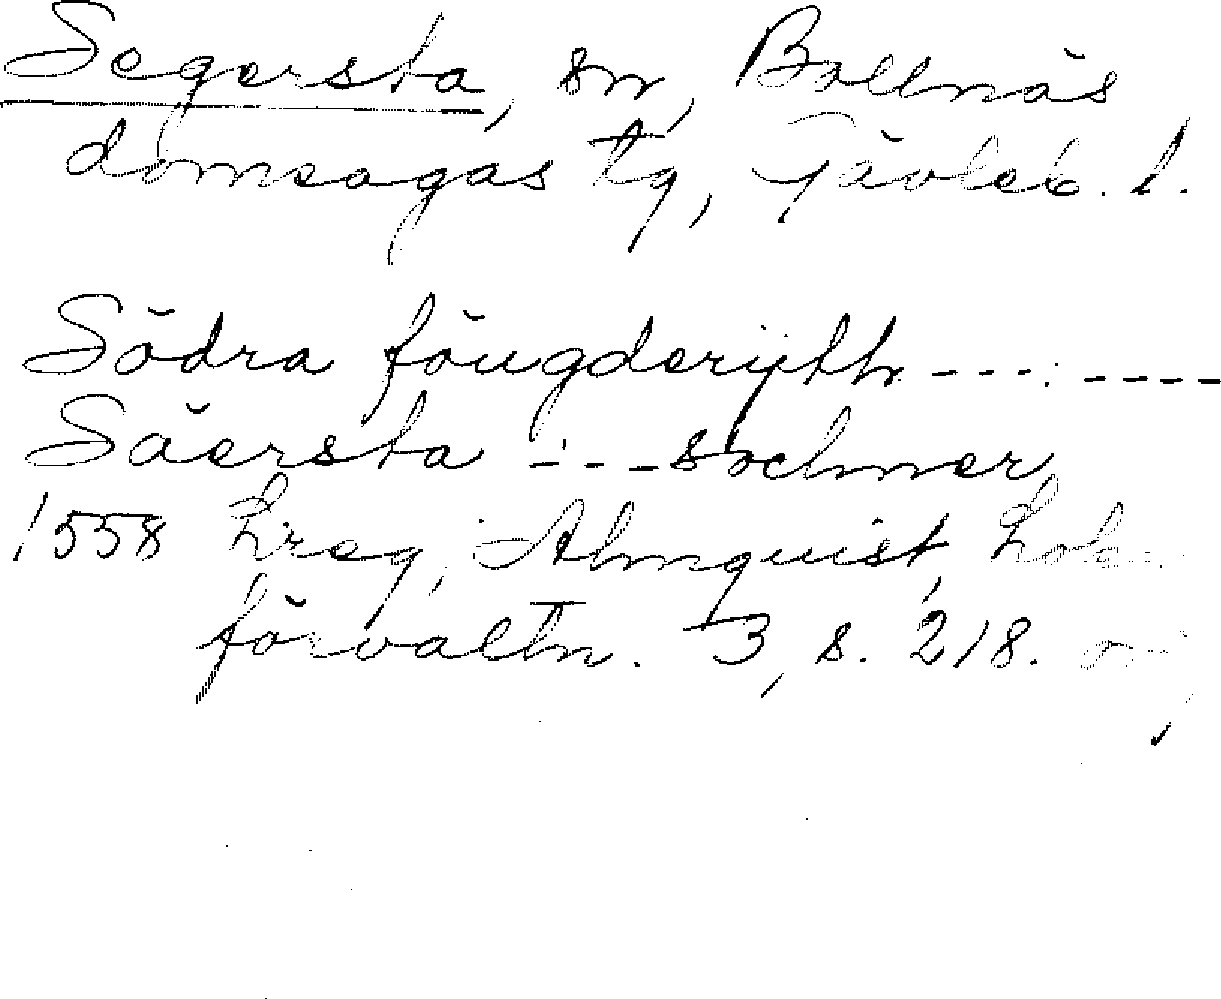 Segersta, sn, Bollnäs
domsagas tg, Gävleb. l.
Södra föugderijtth --- ----
Säersta --- sochner
1558 Lreg; Almquist, Lok
förvaltn. 3, s. 218.